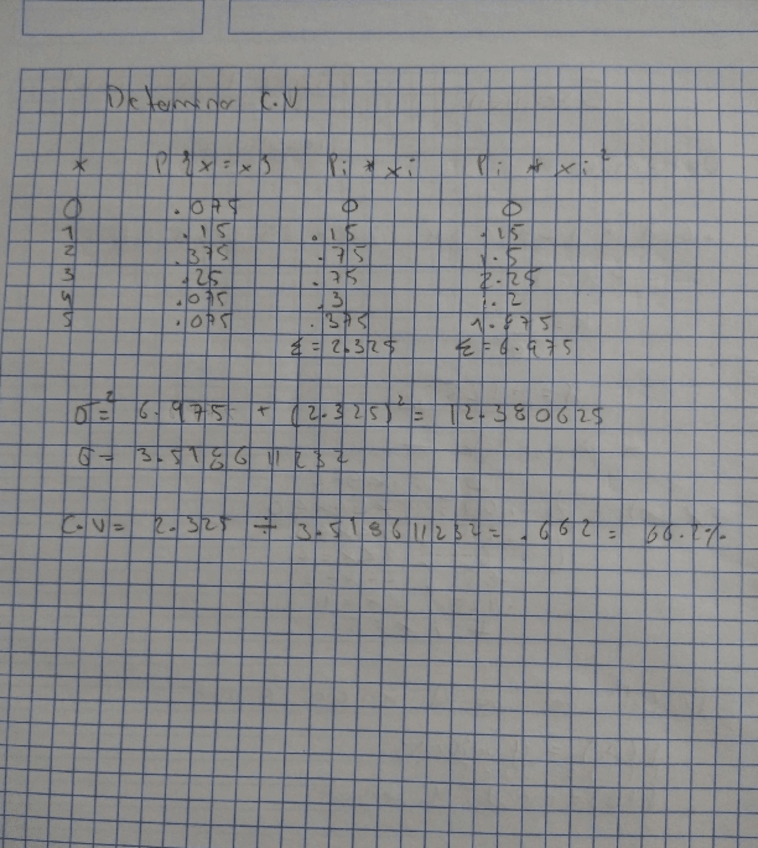 Determinar C.V
x P{x=x} Pi * xi Pi * xi²
0 .075 0 0
1 .15 .15 .15
2 .375 .75 1.5
3 .25 .75 2.25
4 .075 .3 1.2
5 .075 .375 1.875
Σ=2.325 Σ=6.975
σ²= 6.975 + (2.325)² = 12.380625
σ= 3.518611232
C.V= 2.325 ÷ 3.518611232= .662 = 66.2%